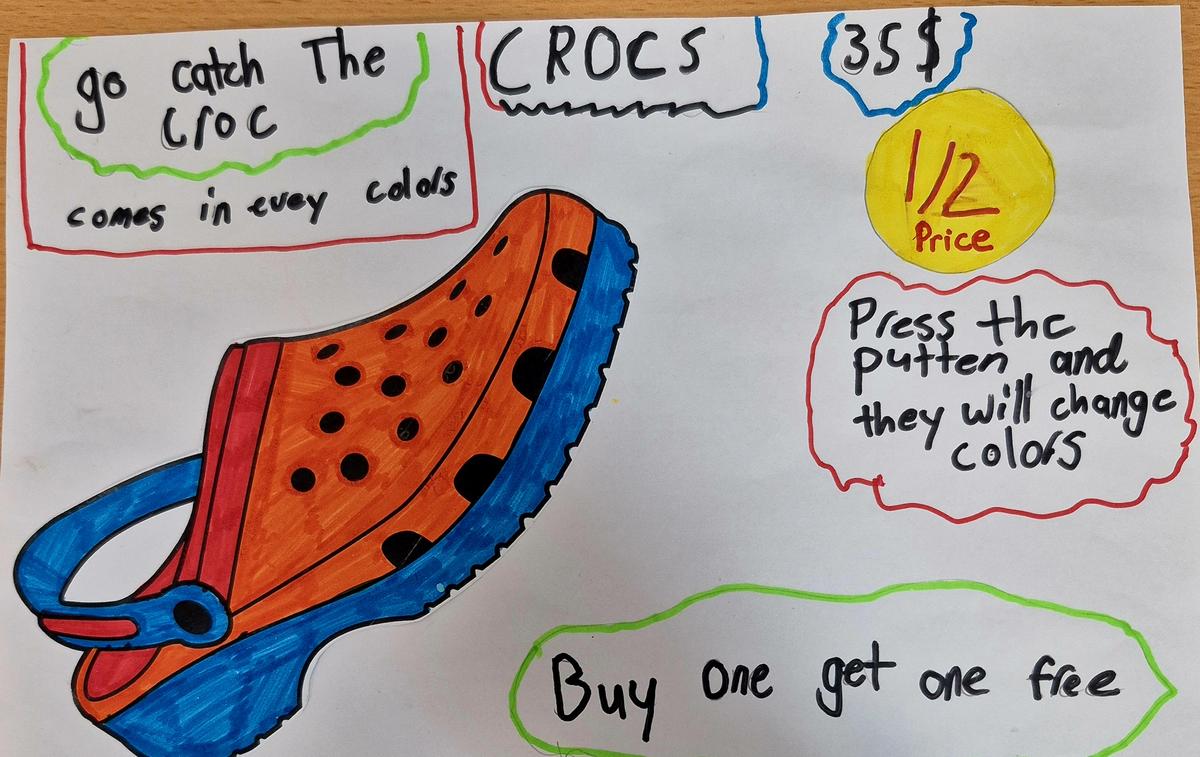 go catch The
croc
comes in evey colors
CROCS
35$
1/2
Price
Press the
putten and
they will change
colors
Buy one get one free